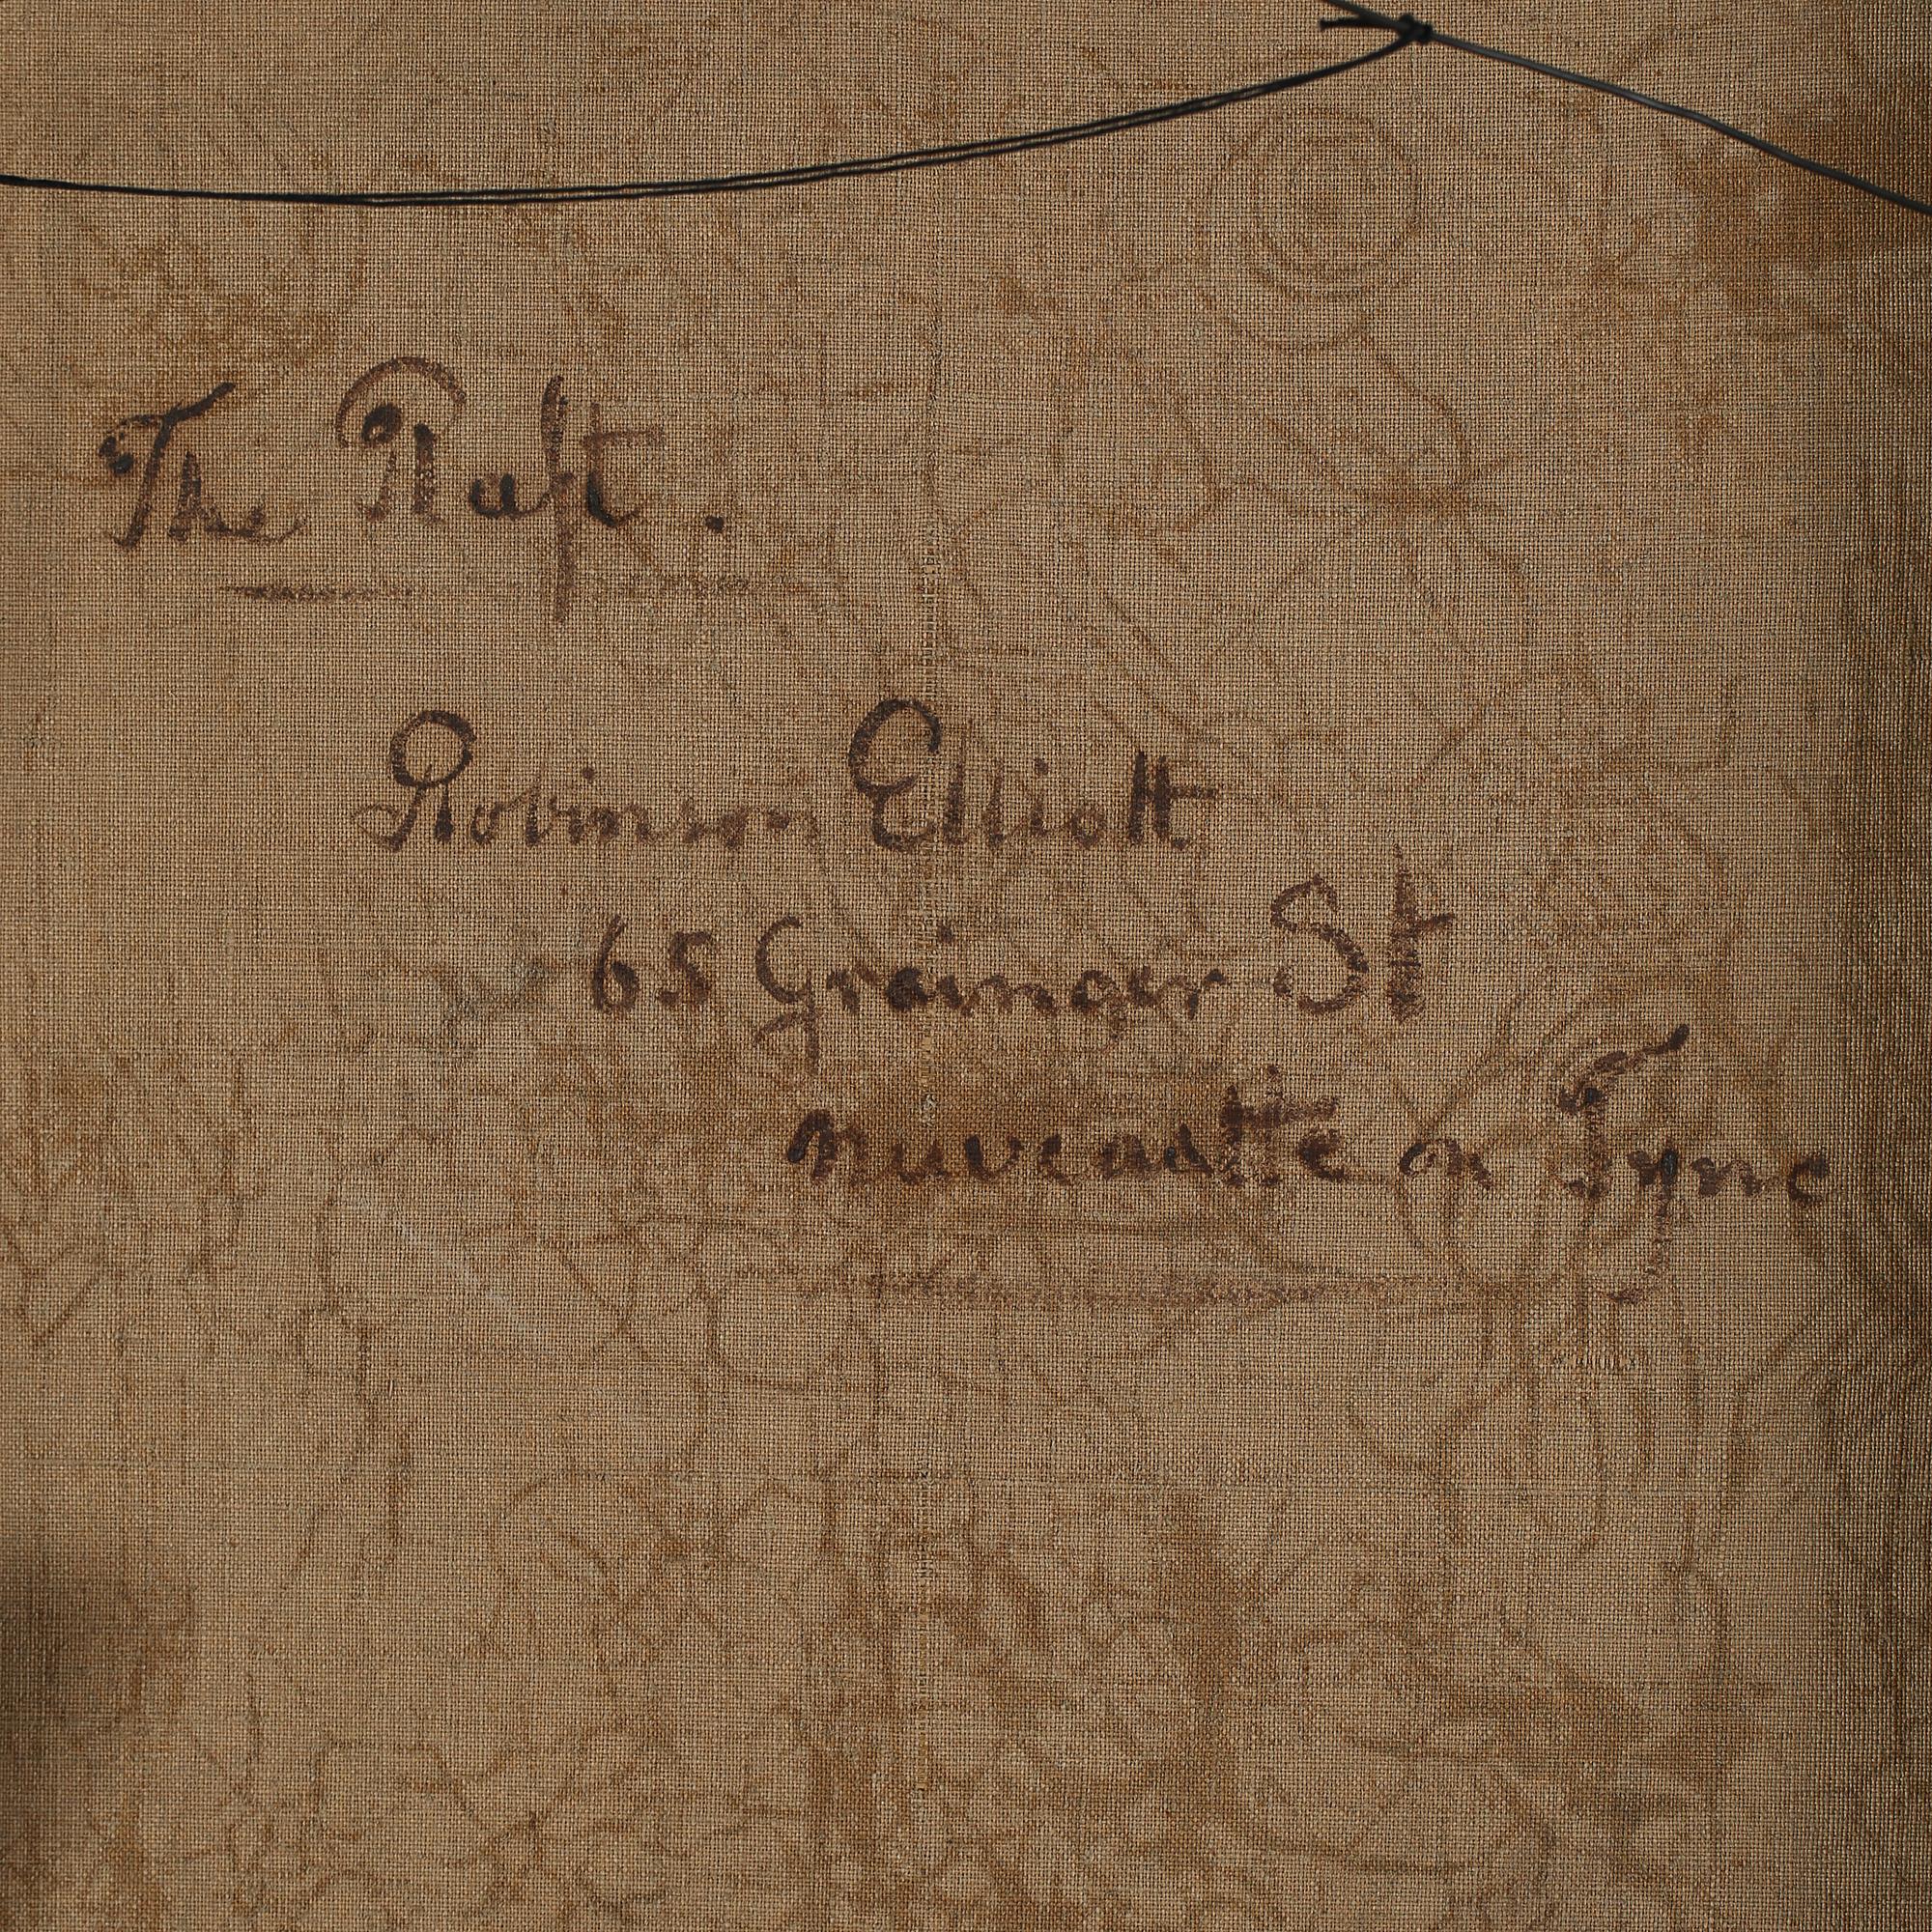 The Raft.
Robinson Elliott
65 Grainger St
Newcastle on Tyne